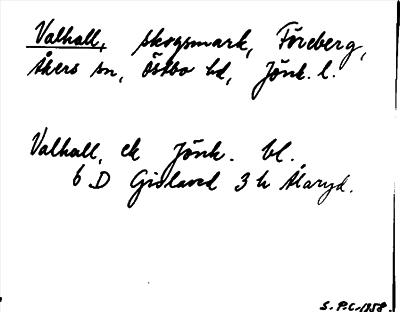 Valhall, skogsmark, Föreberg,
Åkers sn, Östbo hd, Jönk. l.
Valhall, ek Jönk. bl.
6 D Gislaved 3 h Åaryd.
S. P.C. 1958.